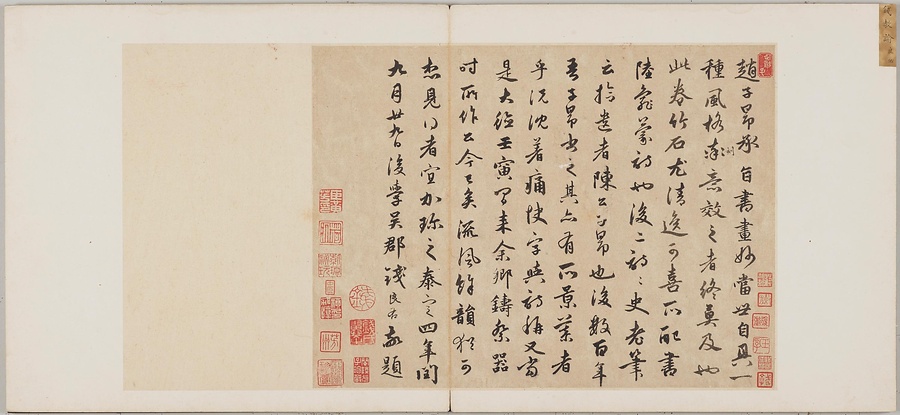 趙子昂承旨書畫妙當世自具一
種風格率意效之者終莫及也
此卷竹石尤清逸可喜所配書
陸龜蒙詩也後二詩詩史老筆
云拾遺者陳公子昂也後數百年
吾子昂書之其亦有所景慕者
乎況沈着痛快字與詩稱又當
是大德壬寅間來余鄉鑄祭器
時所作公今已矣流風餘韻猶可
想見得者宜加珍之泰定四年閏
九月廿九日後學吳郡錢良右敬題